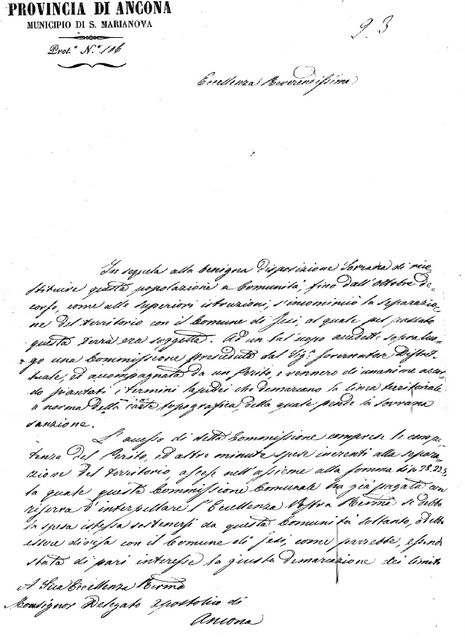 PROVINCIA DI ANCONA
MUNICIPIO DI S. MARIANOVA
Prot.° N.° 106
93
Eccellenza Reverendissima
In seguela alla benigna disposizione Sovrana di rico-
stituire questa popolazione a Comunità, fino dall'ottobre de-
corso, come alle superiori istruzioni, s'incominciò la separazio-
ne del territorio con il Comune di Jesi, al quale pel passato
questa terra era soggetta. Ad un tal uopo accedette sopra luo-
go una Commissione presieduta dal Sig.r Governatore Distret-
tuale, ed accompagnata da un Perito, e vennero di unanime accor-
do piantati i termini lapidei che demarcano la linea territoriale
a norma della carta topografica, della quale pende la sovrana
sanzione.
L'accesso di detta Commissione comprese le compe-
tenze del Perito, ed altre minute spese inerenti alla separa-
zione del territorio, ascese nell'assieme alla somma di 78.23
la quale questa Commissione Comunale ha già pagata con
riserva d'interpellare l'Eccellenza Vostra Rema se detta
spesa istessa sostenersi da questa Comunità soltanto, o debba
essere divisa con il Comune di Jesi, come parrebbe, essendo
stata di pari interesse la giusta demarcazione dei limiti
A Sua Eccellenza Rema
Monsignor Delegato Apostolico di
Ancona